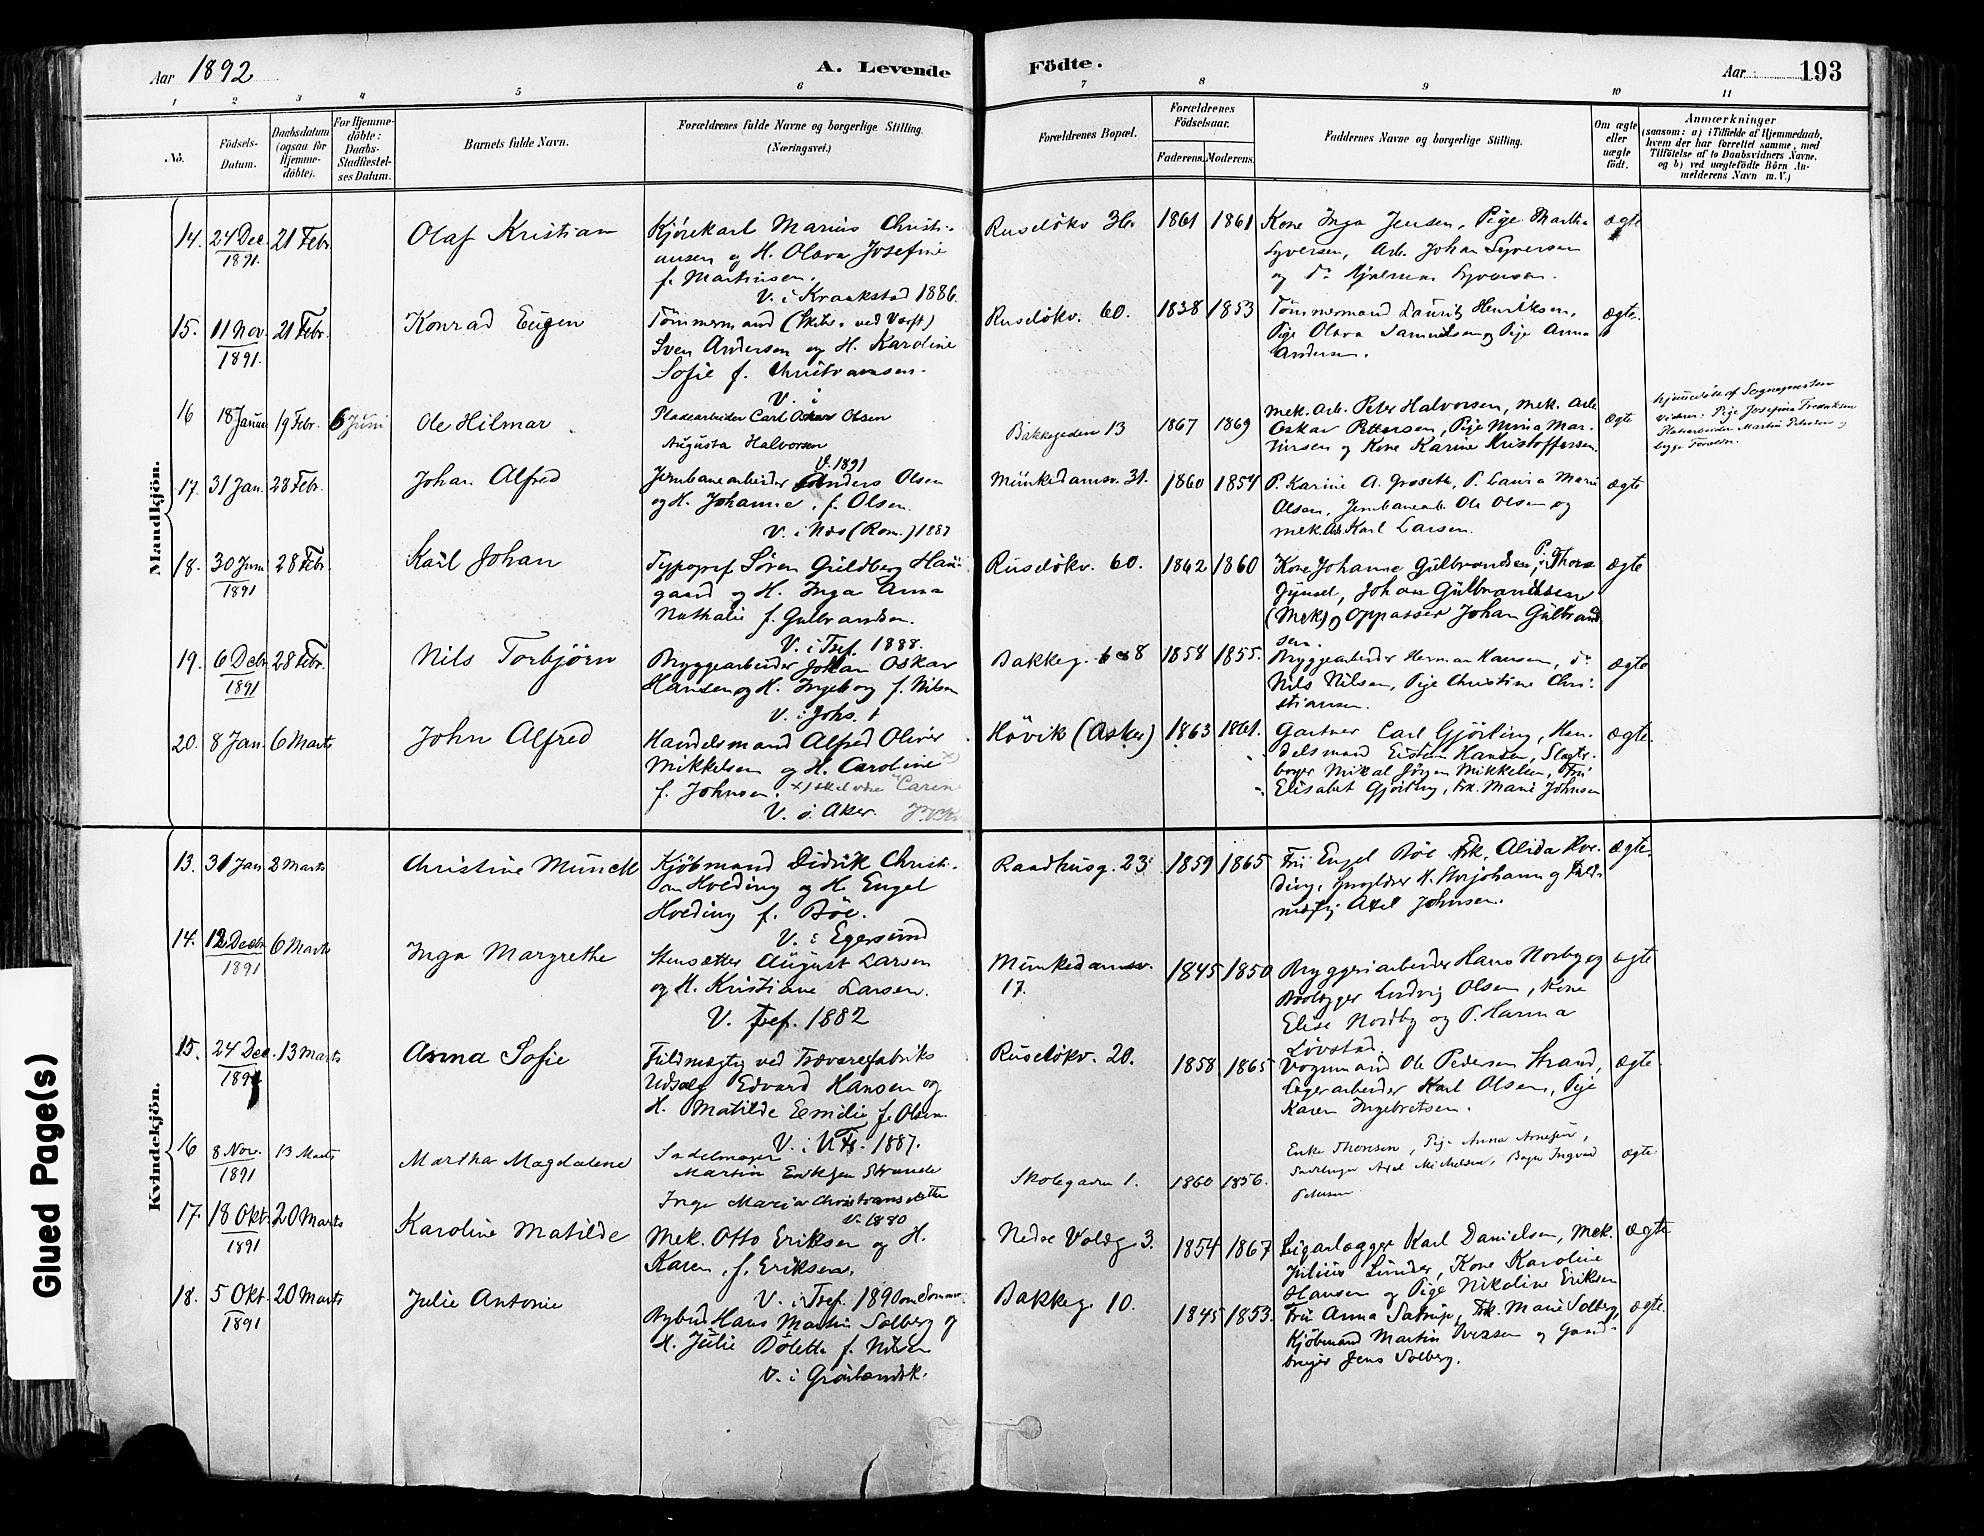 Aar 1892
A. Levende
Födte.
Aar
193
1 2 3 4 5 6 7 8 9 10 11
No.
Födsels-
Datum.
Daabsdatum
(ogsaa for
Hjemme-
döbte).
For Hjemme-
döbte:
Daabs-
Stadfæstel-
ses Datum.
Barnets fulde Navn.
Forældrenes fulde Navne og borgerlige Stilling.
(Næringsvei.)
Forældrenes Bopæl.
Forældrenes
Födselsaar.
Faderens.
Moderens.
Faddernes Navne og borgerlige Stilling.
Om ægte
eller
uægte
födt.
Anmærkninger
(saasom: a) i Tilfælde af Hjemmedaab,
hvem der har forrettet samme, med
Tilföielse af to Daabsvidners Navne,
og b) ved uægtefödte Börn An-
melderens Navn m. V.)
Mandkjön.
14. 24 Dec. 1891. 21 Febr. Olaf Kristian
Kjörekarl Marius Christi-
ansen og H. Olava Josefine
f. Martinsen.
V. i Kraakstad 1886.
Ruselökv 36 1861 1861
Kone Inga Jensen, Pige Martha
Syversen, Arb. Johan Syversen
og do Hjalmar Syversen.
ægte
15. 11 Nov. 1891. 21 Febr. Konrad Eugen
Tömmermand (Skibs. ved Værft)
Sven Andersen og H. Karoline
Sofie f. Christiansen.
V. i
Ruselökv. 60. 1838 1853
Tömmermand Lauritz Henriksen,
Pige Olava Samuelsen og Pige Anna
Andersen.
ægte.
16 18 Januar 19 Febr. 6 Juni Ole Hilmar
Pladearbeider Carl Oskar Olsen
Augusta Halvorsen
V. 1891
Bakkegaden 13 1867 1869
Mek. Arb. Peter Halvorsen, Mek. Arb.
Oskar Pettersen, Pige Mina Mar-
tinsen og Kone Karine Kristoffersen
ægte
Hjemmedöbt af Sognepresten
Vidner: Pige Josefine Fredriksen
Martin Petersen og
begge Forældre.
17. 31 Jan. 28 Febr. Johan Alfred
Jernbanearbeider Anders Olsen
og H. Johanne, f. Olsen.
V. i Næs (Rom.) 1887
Munkedamsv. 31. 1860 1854
P. Karine A. Groseth, P. Laura Marie
Olsen, Jernbanearb. Ole Olsen og
Mek. Arb. Karl Larsen.
ægte
18. 30 Juni 1891 28 Febr. Karl Johan
Typograf Sören Guldberg Hau-
gaard og H. Inga Anna
Nathalie f. Gulbrandsen.
V. i Tref. 1888.
Ruselökv. 60. 1862 1860
Kone Johanne Gulbrandsen, P. Thora
Johan Gulbrandsen
(Mek) og Oppasser Johan Gulbrand-
sen.
ægte
19. 6 Debr 1891 28 Febr. Nils Torbjörn
Bryggearbeider Johan Oskar
Hansen og H. Ingeborg f. Nilsen
V. i Johs. t
Bakkeg. 6 8 1858 1855.
Bryggearbeider Herman Hansen, do
Nils Nilsen, Pige Christine Chri-
stiansen.
ægte
20. 8 Jan. 6 Marts John Alfred
Handelsmand Alfred Oliver
Mikkelsen og H. Caroline x)
f. Johnsen. x) skal være "Carin
V. i Aker.
Hövik (Asker) 1863 1861.
Gartner Carl Gjörling, Han-
delsmand Eistein Hansen, Slagter-
borger Mikal Jörgen Mikkelsen, Fru
Elisabet Gjörling, Frk. Marie Johnsen
ægte.
Kvindekjön.
13. 31 Jan 2 Marts Christine Munch
Kjöbmand Didrik Christi-
an Hveding og H. Engel
Hveding f. Böe.
V. i Egersund
Raadhusg. 23 1859 1865
Fru Engel Böe Frk. Alida Hve-
ding, H. Storjohann og Fuld-
mægtig Axel Johnsen.
ægte.
14. 12 Decbr 1891 6 Marts Inga Margrethe
Stensætter August Larsen
og H. Kristiane Larsen.
V. Tref. 1882
Munkedamsv.
17. 1845 1850
Bryggeriarbeider Hans Norby og
Ludvig Olsen, Kone
Elise Nordby og P. Hanna
Lövstad.
ægte
15. 24 Dec. 1891 13 Marts Anna Sofie
Fuldmægtig ved Trævarefabriks
Udsalg Edvard Hansen og
H. Matilde Emilie f. Olsen.
V. i U Fr. 1887.
Ruselökv. 20. 1858 1865
Vognmand Ole Pedersen Strand,
Lagerarbeider Karl Olsen, Pige
Karen Ingebretsen.
ægte.
16 8 Nov. 1891 13 Marts Martha Magdalene
Sadelmager
Martin Eriksen Strande
Inga Maria Christiansdatter
V. 1880
Skolegaden 1. 1860 1856.
Enke Thomsen, Pige Anna Arnesen,
Axel Michelsen, Ingvad
Petersen
ægte.
17. 18 Okt. 1891 20 Marts Karoline Matilde
Mek. Otto Eriksen og H.
Karen, f. Eriksen.
V. i Tref. 1890
Nedre Voldg 3. 1854 1867
Cigarlægger Karl Danielsen, Mek.
Julius Linder, Kone Karoline
Hansen og Pige Nikoline Eriksen
ægte
18. 5 Okt. 1891 20 Marts Julie Antonie
Bybud Hans Martin Solberg og
H. Julie Bolette f. Nilsen
V. i Grönlandsk.
Bakkeg. 10. 1845 1853.
Fru Anna Satrup, Frk. Marie Solberg,
Kjöbmand Martin Iversen og Gaard-
bruger Jens Solberg.
ægte.
Glued Page(s)